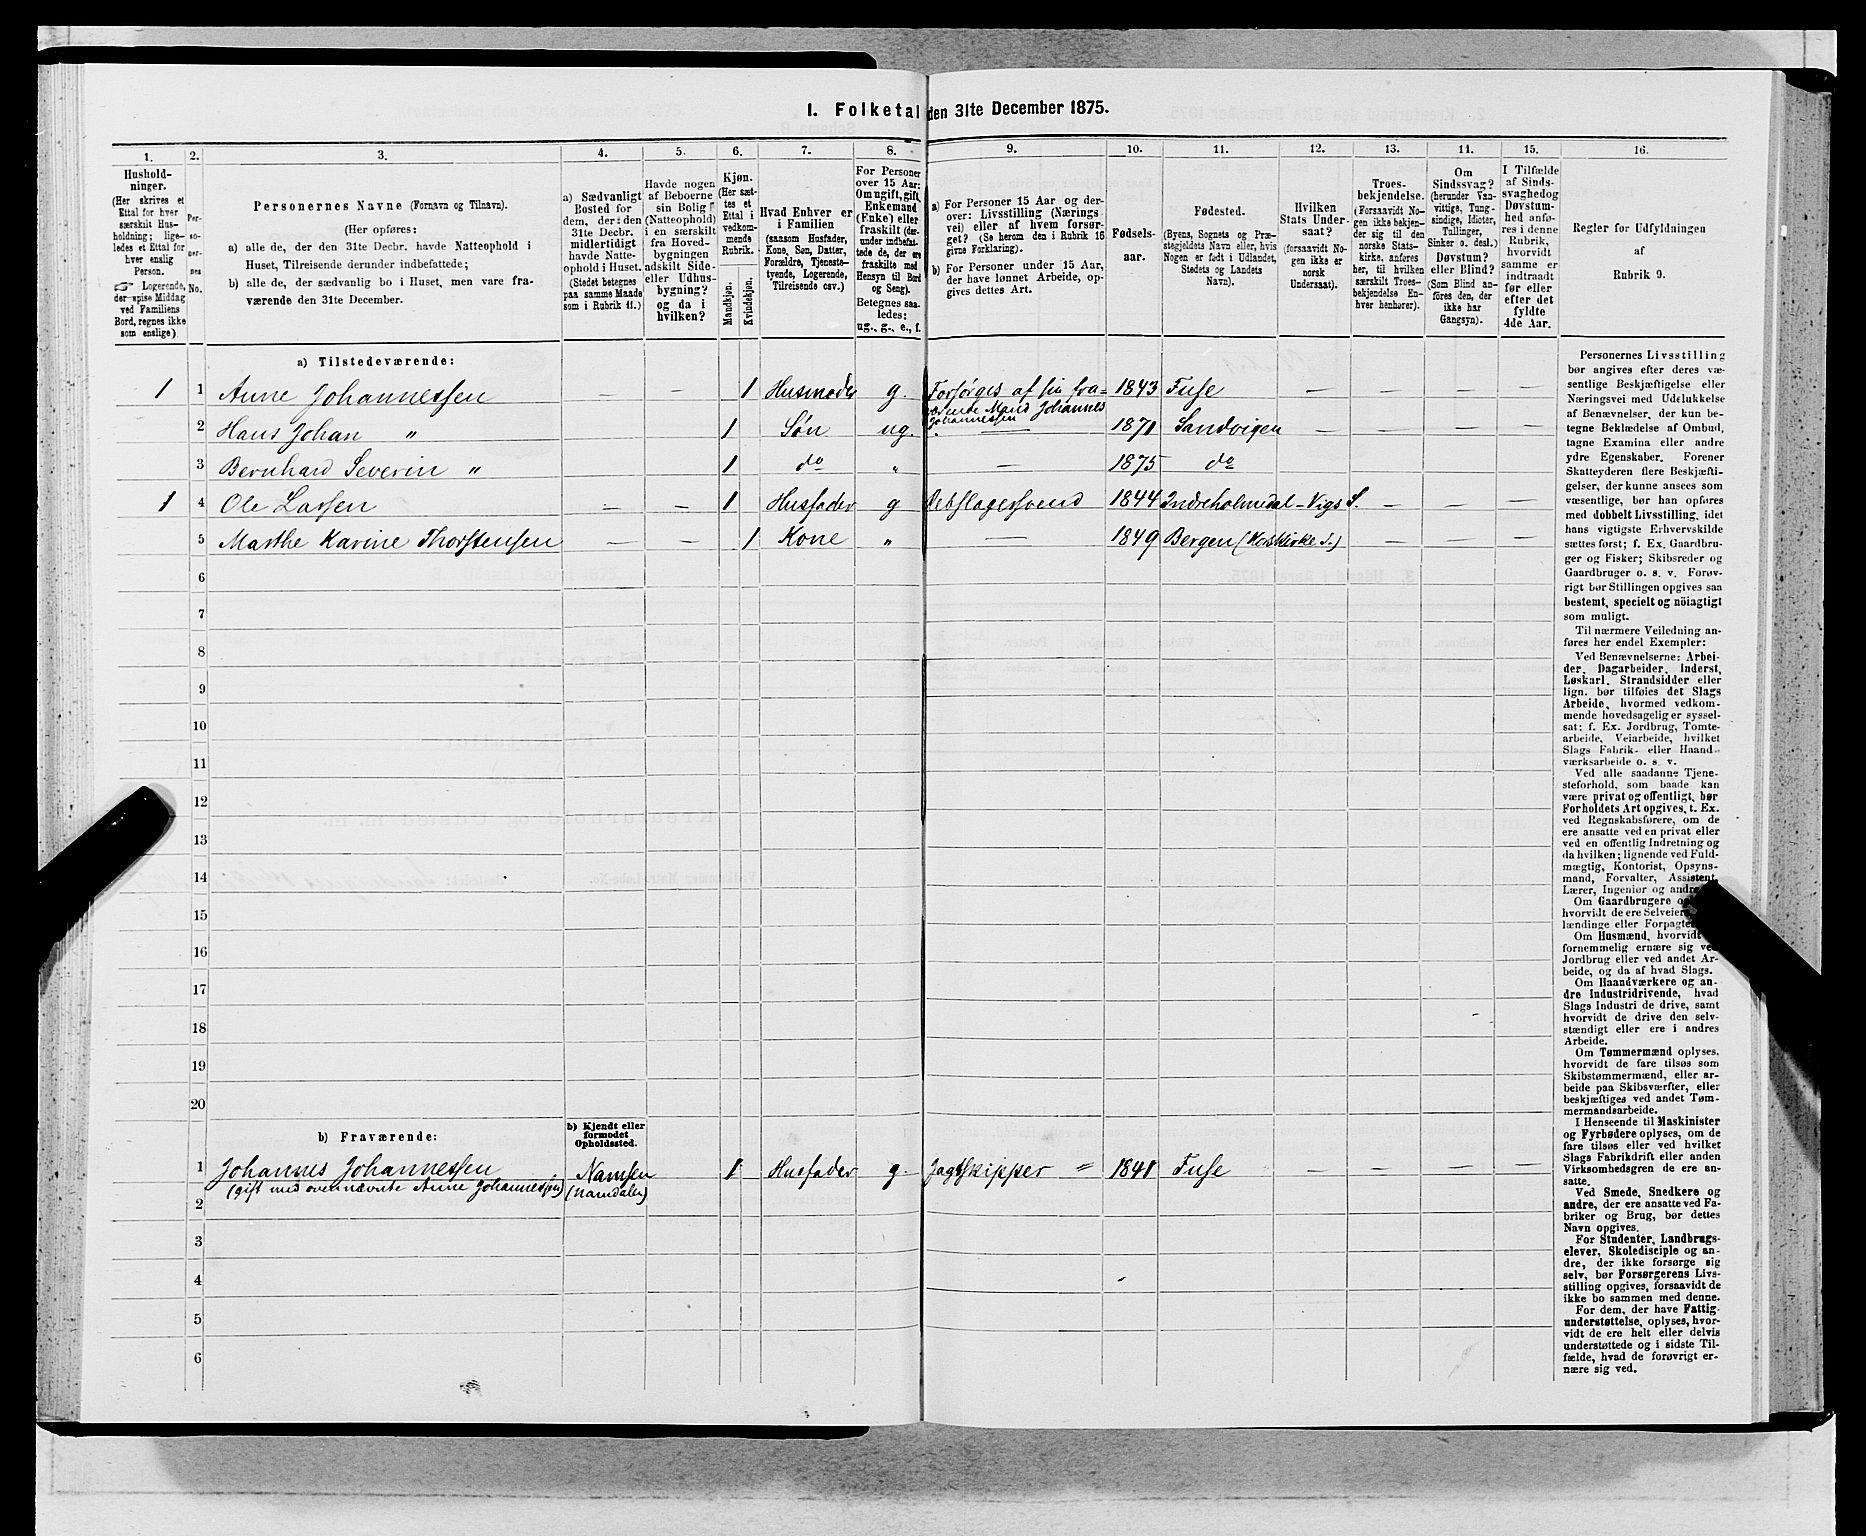 I. Folketal den 31te December 1875.
1. 2. 3. 4. 5. 6. 7. 8. 9. 10. 11. 12. 13. 11. 15. 16.
Hushold-
ninger.
(Her skrives et
Ettal for hver
særskilt Hus-
holdning; lige-
ledes et Ettal for
hver enslig
Person.
☞ Logerende,
der spise Middag
ved Familiens
Bord, regnes ikke
som enslige).
Per-
so-
ner-
nes
No.
Personernes Navne (Fornavn og Tilnavn).
(Her opføres:
a) alle de, der den 31te Decbr. havde Natteophold i
Huset, Tilreisende derunder indbefattede;
b) alle de, der sædvanlig bo i Huset, men vare fra-
værende den 31te December.
a) Sædvanligt
Bosted for
dem, der den
31te Decbr.
midlertidigt
havde Natte-
ophold i Huset.
(Stedet betegnes
paa samme Maade
som i Rubrik 11.)
Havde nogen
af Beboerne
sin Bolig
(Natteophold)
i en særskilt
fra Hoved-
bygningen
adskilt Side-
eller Udhus-
bygning?
og da i
hvilken?
Kjøn.
(Her sæt-
tes et
Ettal i
vedkom-
mende
Rubrik.
Mandkjøn.
Kvindekjøn.
Hvad Enhver er
i Familien
(saasom Husfader,
Kone, Søn, Datter,
Forældre, Tjeneste-
tyende, Logerende,
Tilreisende osv.)
For Personer
over 15 Aar:
Om ugift, gift,
Enkemand
(Enke) eller
fraskilt (der-
under indbefat-
tede de, der ere
fraskilte med
Hensyn til Bord
og Seng).
Betegnes saa-
ledes:
ug., g., e., f.
a) For Personer 15 Aar og der-
over: Livsstilling (Nærings
vei) eller af hvem forsør-
get? (Se herom den i Rubrik 16
givne Forklaring).
b) For Personer under 15 Aar,
der have lønnet Arbeide, op-
gives dettes Art.
Fødsels-
aar.
Fødested.
(Byens, Sognets og Præ-
stegjeldets Navn eller, hvis
Nogen er født i Udlandet,
Stedets og Landets
Navn).
Hvilken
Stats Under-
saat?
(forsaavidt No-
gen ikke er
norsk
Undersaat).
Troes-
bekjendelse.
(Forsaavidt No-
gen ikke bekjen-
der sig til den
norske Stats-
kirke, anføres
her, til hvilken
særskilt Troes-
bekjendelse En-
hver henhører).
Om
Sindssvag?
(herunder Van-
vittige, Tung-
sindige, Idioter,
Tullinger,
Sinker o. desl.)
Døvstum?
eller Blind?
(Som Blind an-
føres den, der
ikke har
Gangsyn).
I Tilfælde
af Sinds-
svaghed og
Døvstum-
hed anfø-
res i denne
Rubrik,
hvorvidt
samme er
indtraadt
før eller
efter det
fyldte
4de Aar.
Regler for Udfyldningen
af
Rubrik 9.
a) Tilstedeværende:
1 1 Anne Johannessen — — 1 Husmoder g. Forsørges af sin fra- 1843 Fuse — — — —
værende Mand Johannes
Johannessen
2 Hans Johan " 1 Søn ug. — 1871 Sandvigen
3 Bernhard Severin " 1 do " — 1875 do
1 4 Ole Larsen — — 1 Husfader g 1844 Indreholmedal-Vigs S. — — —
5 Marthe Karine Thorstensen 1 Kone " — 1849 Bergen (Korskirke S.) — — —
6
7
8
9
10
11
12
13
14
15
16
17
18
19
20
b) Fraværende:
b) Kjendt eller
formodet
Opholdssted.
1 Johannes Johannessen Namsen 1 Husfader g. Jagtskipper " 1841 Fuse — — — —
(gift med overnævnte Anne Johannessen) (Namdalen)
2
3
4
5
6
Personernes Livsstilling
bør angives efter deres væ-
sentlige Beskjæftigelse eller
Næringsvei med Udelukkelse
af Benævnelser, der kun be-
tegne Beklædelse af Ombud,
tagne Examina eller andre
ydre Egenskaber. Forener
Skatteyderen flere Beskjæfti-
gelser, der kunne ansees som
væsentlige, bør han opføres
med dobbelt Livsstilling, idet
hans vigtigste Erhvervskilde
sættes først; f. Ex. Gaardbru-
ger og Fisker; Skibsreder og
Gaardbruger o. s. v. Forøv-
rigt bør Stillingen opgives saa
bestemt, specielt og nøiagtigt
som muligt.
Til nærmere Veiledning an-
føres her endel Exempler:
Ved Benævnelserne: Arbei-
der, Dagarbeider, Inderst,
Løskarl, Strandsidder eller
lign. bør tilføies det Slags
Arbeide, hvormed vedkom-
mende hovedsagelig er syssel-
sat: f. Ex. Jordbrug, Tomte-
arbeide, Veiarbeide, hvilket
Slags Fabrik- eller Haand-
værksarbeide o. s. v.
Ved alle saadanne Tjene-
steforhold, som baade kan
være privat og offentligt, bør
Forholdets Art opgives, t. Ex.
ved Regnskabsførere, om de
ere ansatte ved en privat eller
ved en offentlig Indretning og
da hvilken; lignende ved Fuld-
mægtig, Kontorist, Opsyns-
mand, Forvalter, Assistent,
Lærer, Ingeniør og andre.
Om Gaardbrugere
hvorvidt de ere Selveiere,
lændinge eller Forpagtere.
Om Husmænd, hvorvidt
fornemmelig ernære sig ved
Jordbrug eller ved andet Ar-
beide, og da af hvad Slags.
Om Haandværkere og an-
dre Industridrivende, hvad
Slags Industri de drive, samt
hvorvidt de drive den selv-
stændigt eller ere i andres
Arbeide.
Om Tømmermænd oplyses,
hvorvidt de fare tilsøs som
Skibstømmermænd, eller ar-
beide paa Skibsværfter, eller
beskjæftiges ved andet Tøm-
mermandsarbeide.
I Henseende til Maskinister
og Fyrbødere oplyses, om de
fare tilsøs eller ved hvilket
Slags Fabrikdrift eller anden
Virksomhedsgren de ere an-
satte.
Ved Smede, Snedkere og
andre, der ere ansatte ved Fa-
briker og Brug, bør dettes
Navn opgives.
For Studenter, Landbrugs-
elever, Skoledisciple og an-
dre, der ikke forsørge sig
selv, bør Forsørgerens Livs-
stilling opgives, forsaavidt de
ikke bo sammen med denne.
For dem, der have Fattig-
understøttelse, oplyses, hvor-
vidt de ere helt eller delvis
understøttede og i sidste Til-
fælde, hvad de forøvrigt er-
nære sig ved.